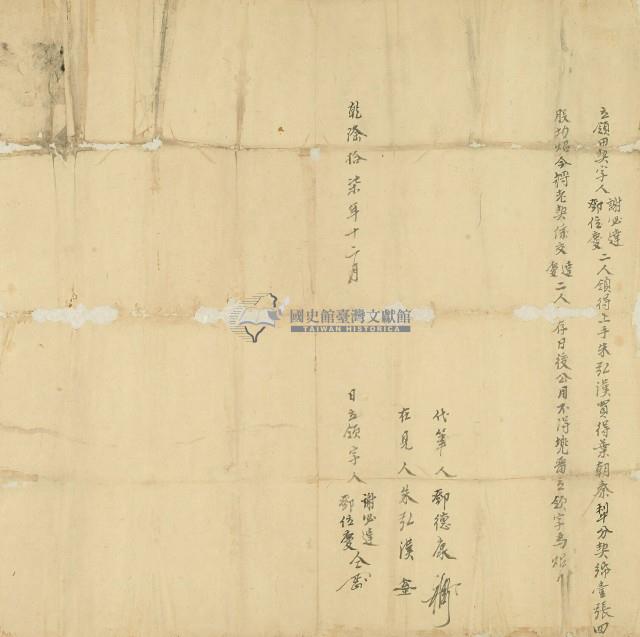 立領田契字人謝必達鄧位慶二人領得上手朱弘漢買得葉朝泰犁分契綿壹張四
股均炤今將老契係交達慶二人存日後公用不得執番立領字爲炤
代筆人鄧德康
在見人朱弘漢
乾隆拾柒年十二月日立領字人謝必達鄧位慶仝
國史館臺灣文獻館
TAIWAN HISTORICA